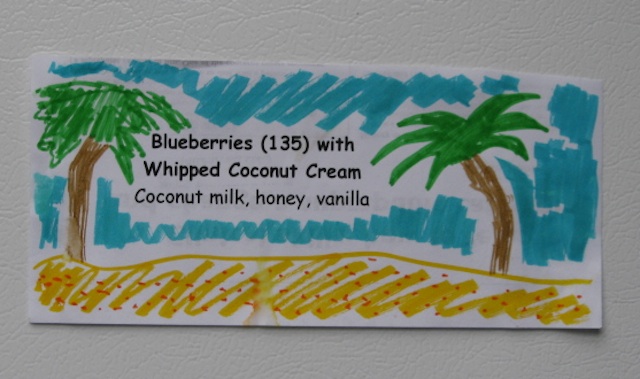 Blueberries (135) with
Whipped Coconut Cream
Coconut milk, honey, vanilla